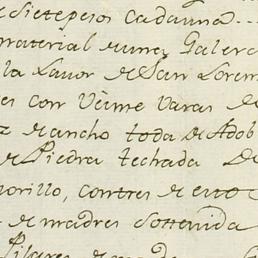 de siete pesos cada una...
material de una Galera
la Lavor de San Loren
es con Veinte varas de
z de ancho toda de Adob
de Piedra techada De
morillo, con tres de
de madres sostenida
Pilares de